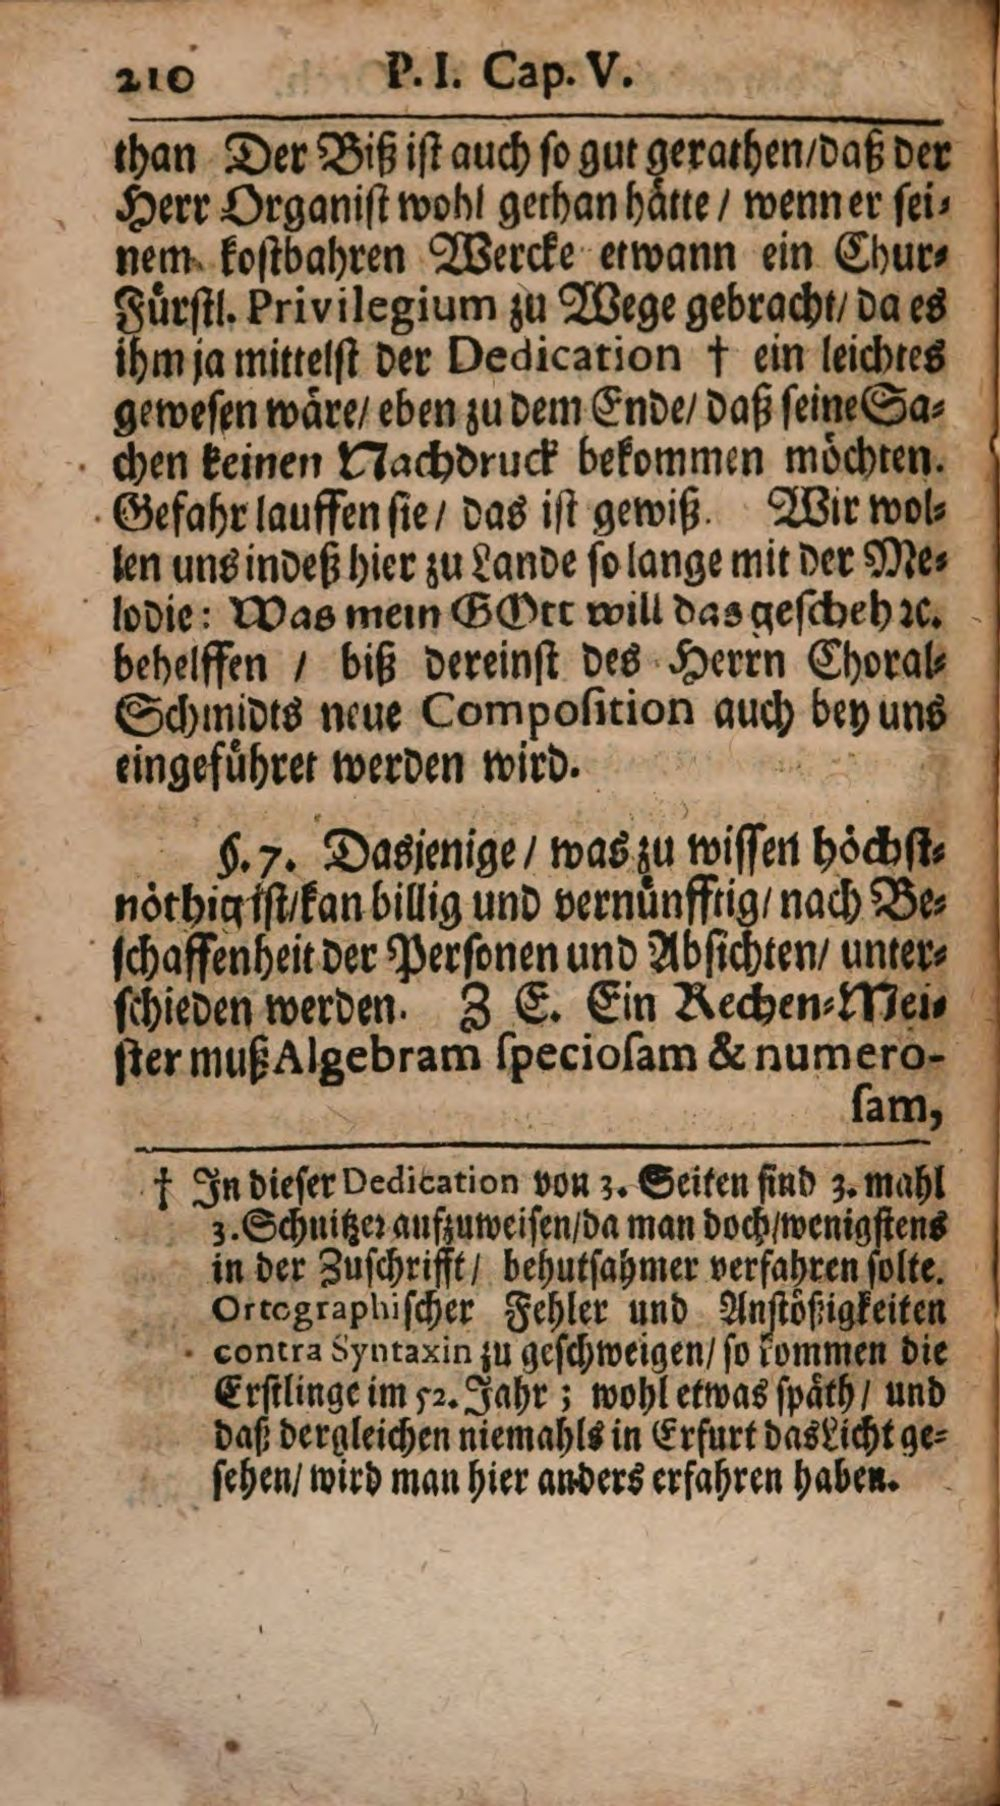 210 P. I. Cap. V.
than Der Biß ist auch so gut gerathen/daß der
Herr Organist wohl gethan hätte / wenn er sei-
nem kostbahren Wercke etwann ein Chur-
Fürstl. Privilegium zu Wege gebracht/ da es
ihm ja mittelst der Dedication † ein leichtes
gewesen wäre/ eben zu dem Ende/ daß seine Sa-
chen keinen Nachdruck bekommen möchten.
Gefahr lauffen sie / das ist gewiß. Wir wol-
len uns indeß hier zu Lande so lange mit der Me-
lodie: Was mein GOtt will das gescheh ꝛc.
behelffen / biß dereinst des Herrn Choral-
Schmidts neue Composition auch bey uns
eingeführet werden wird.
§. 7. Dasjenige / was zu wissen höchst-
nöthig ist/kan billig und vernünfftig/ nach Be-
schaffenheit der Personen und Absichten/ unter-
schieden werden. Z E. Ein Rechen-Mei-
ster muß Algebram speciosam & numero-
sam,
† In dieser Dedication von 3. Seiten sind 3. mahl
3. Schnitzer aufzuweisen/da man doch/wenigstens
in der Zuschrifft / behutsahmer verfahren solte.
Ortographischer Fehler und Anstößigkeiten
contra Syntaxin zu geschweigen/ so kommen die
Erstlinge im 52. Jahr ; wohl etwas späth / und
daß dergleichen niemahls in Erfurt das Licht ge-
sehen/ wird man hier anders erfahren haben.